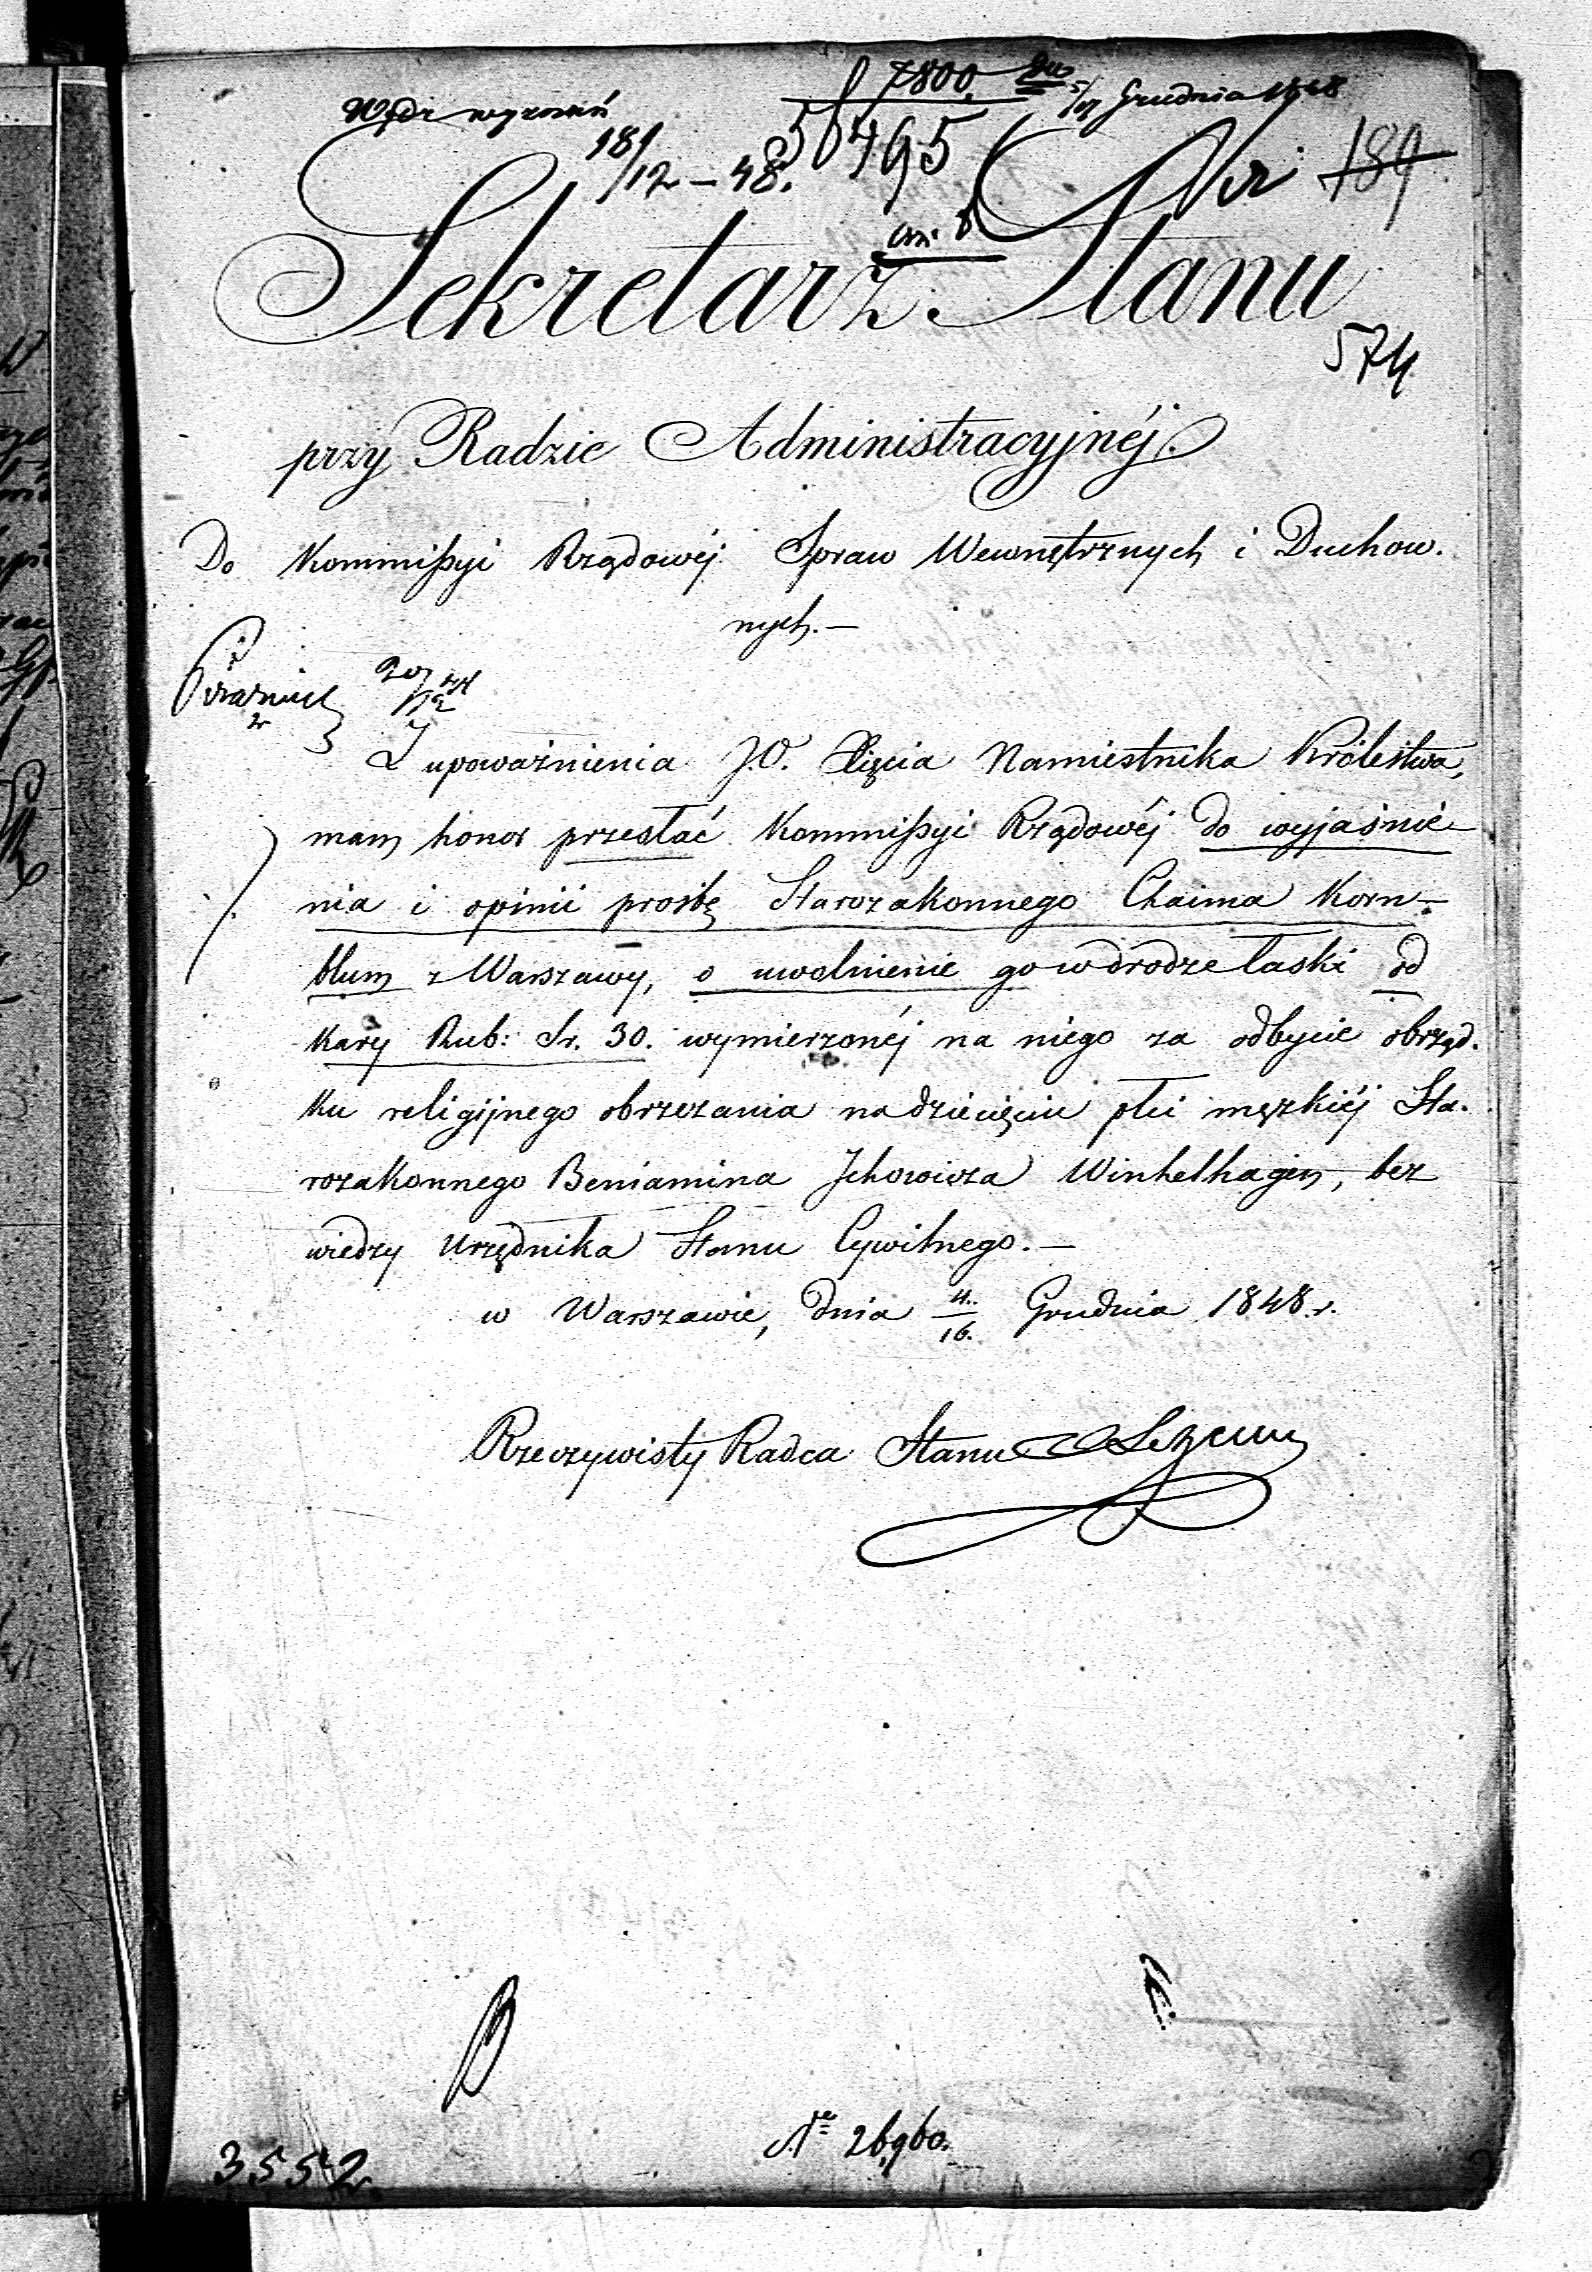 7800.
Grudnia 1848
18/12 – 48.
Nr 189
Sekretarz Stanu
574
przy Radzie Administracyjnéj.
Do Kommissyi Rządowéj Spraw Wewnętrznych i Duchow.
nych. –
Z upoważnienia J.O. Xięcia Namiestnika Królestwa,
mam honor przesłać Kommissyi Rządowéj do wyjaśnie-
nia i opinii prośbę Starozakonnego Chaima Korn-
blum z Warszawy, o uwolnienie go w drodze łaski od
kary Rub: Sr. 30. wymierzonéj na niego za odbycie obrząd.
ku religijnego obrzezania na dziecięciu płci męzkiéj Sta.
rozakonnego Beniamina Jchowicza Winkelhagen, bez
wiedzy Urzędnika Stanu Cywilnego. –
w Warszawie, dnia 4/16. Grudnia 1848 r.
Rzeczywisty Radca Stanu
No 26960.
3552